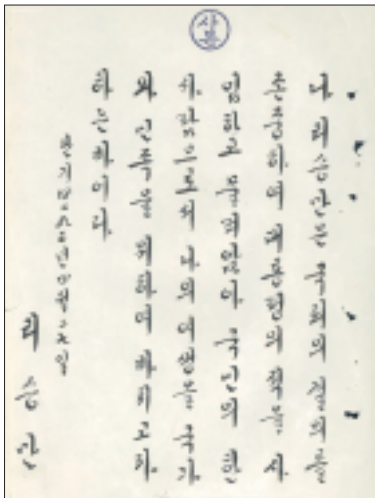 사본
나 리승만은 국회의 결의를
존중하여 대통령의 직을 사
임하고 물러앉아 국민의 한
사람으로서 나의 여생을 국가
와 민족을 위하여 바치고자
하는 바이다
단기四二九三년四월二十七일
리승만